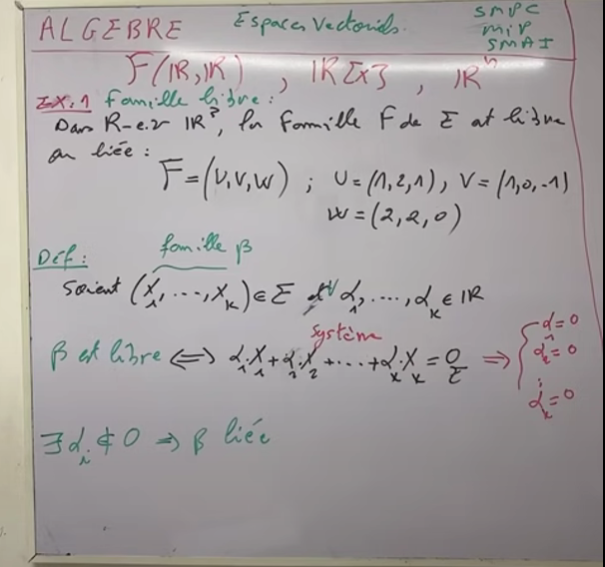 ALGEBRE Espaces Vectoriels. SMPC
MIP
SMAI
F(IR, IR), IR[x], IRⁿ
Ex.1 Famille libre :
Dans R-e.v IR³, la famille F de E est libre
ou liée :
F = (U, V, W) ; U = (1, 2, 1), V = (1, 0, -1)
W = (2, 2, 0)
Déf: famille β
Soient (X₁, ..., Xₖ) ∈ E et ∀ α₁, ..., αₖ ∈ IR
système
β est libre ⟺ α₁.X₁ + α₂.X₂ + ... + αₖ.Xₖ = 0_E ⟹ { α₁ = 0
α₂ = 0
⋮
αₖ = 0
∃ αᵢ ≠ 0 ⟹ β liée